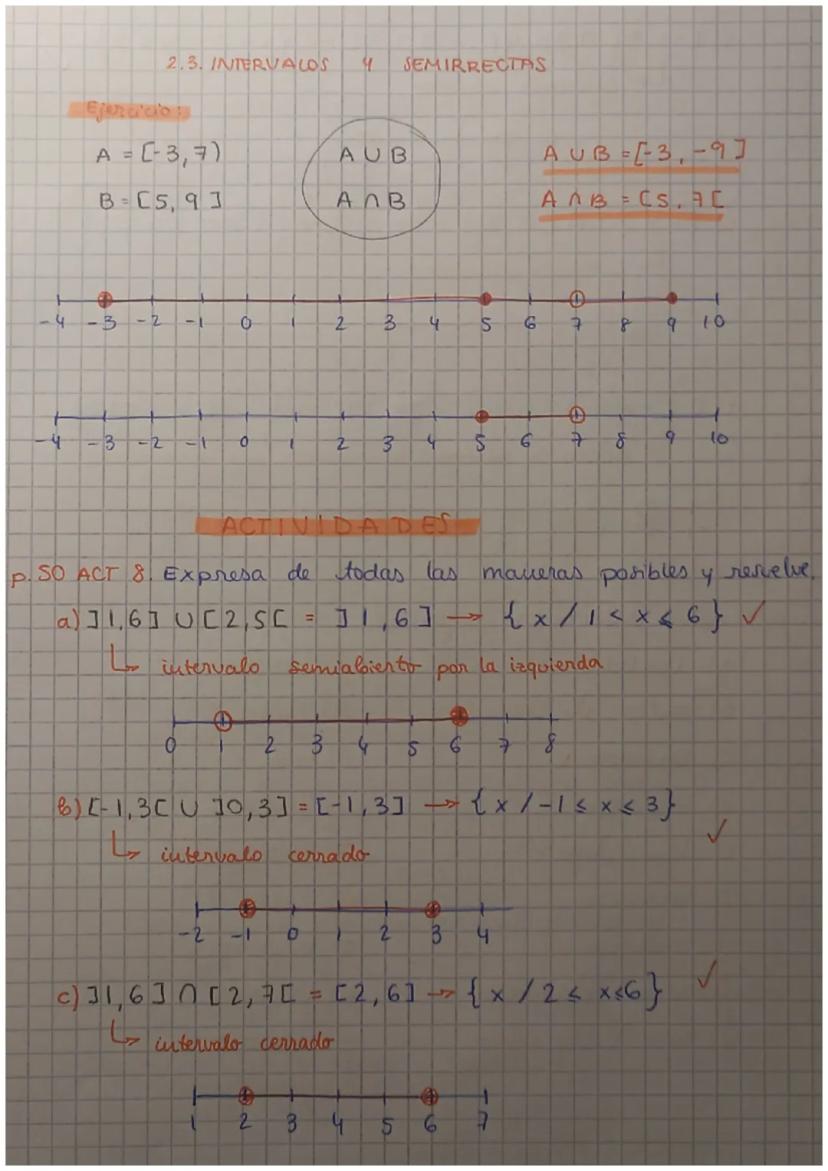 2.3. INTERVALOS Y SEMIRRECTAS
Ejercicio:
A = [-3, 7) A ∪ B A ∪ B = [-3, -9]
B = [5, 9] A ∩ B A ∩ B = [5, 7[
-4 -3 -2 -1 0 1 2 3 4 5 6 7 8 9 10
-4 -3 -2 -1 0 1 2 3 4 5 6 7 8 9 10
ACTIVIDADES
p. 50 ACT 8. Expresa de todas las maneras posibles y resuelve.
a) ]1,6] ∪ [2,5[ = ]1,6] → {x / 1 < x ≤ 6} ✓
↳ intervalo semiabierto por la izquierda
0 1 2 3 4 5 6 7 8
b) [-1,3[ ∪ ]0,3] = [-1,3] → {x / -1 ≤ x ≤ 3} ✓
↳ intervalo cerrado
-2 -1 0 1 2 3 4
c) ]1,6] ∩ [2,7[ = [2,6] → {x / 2 ≤ x ≤ 6} ✓
↳ intervalo cerrado
1 2 3 4 5 6 7